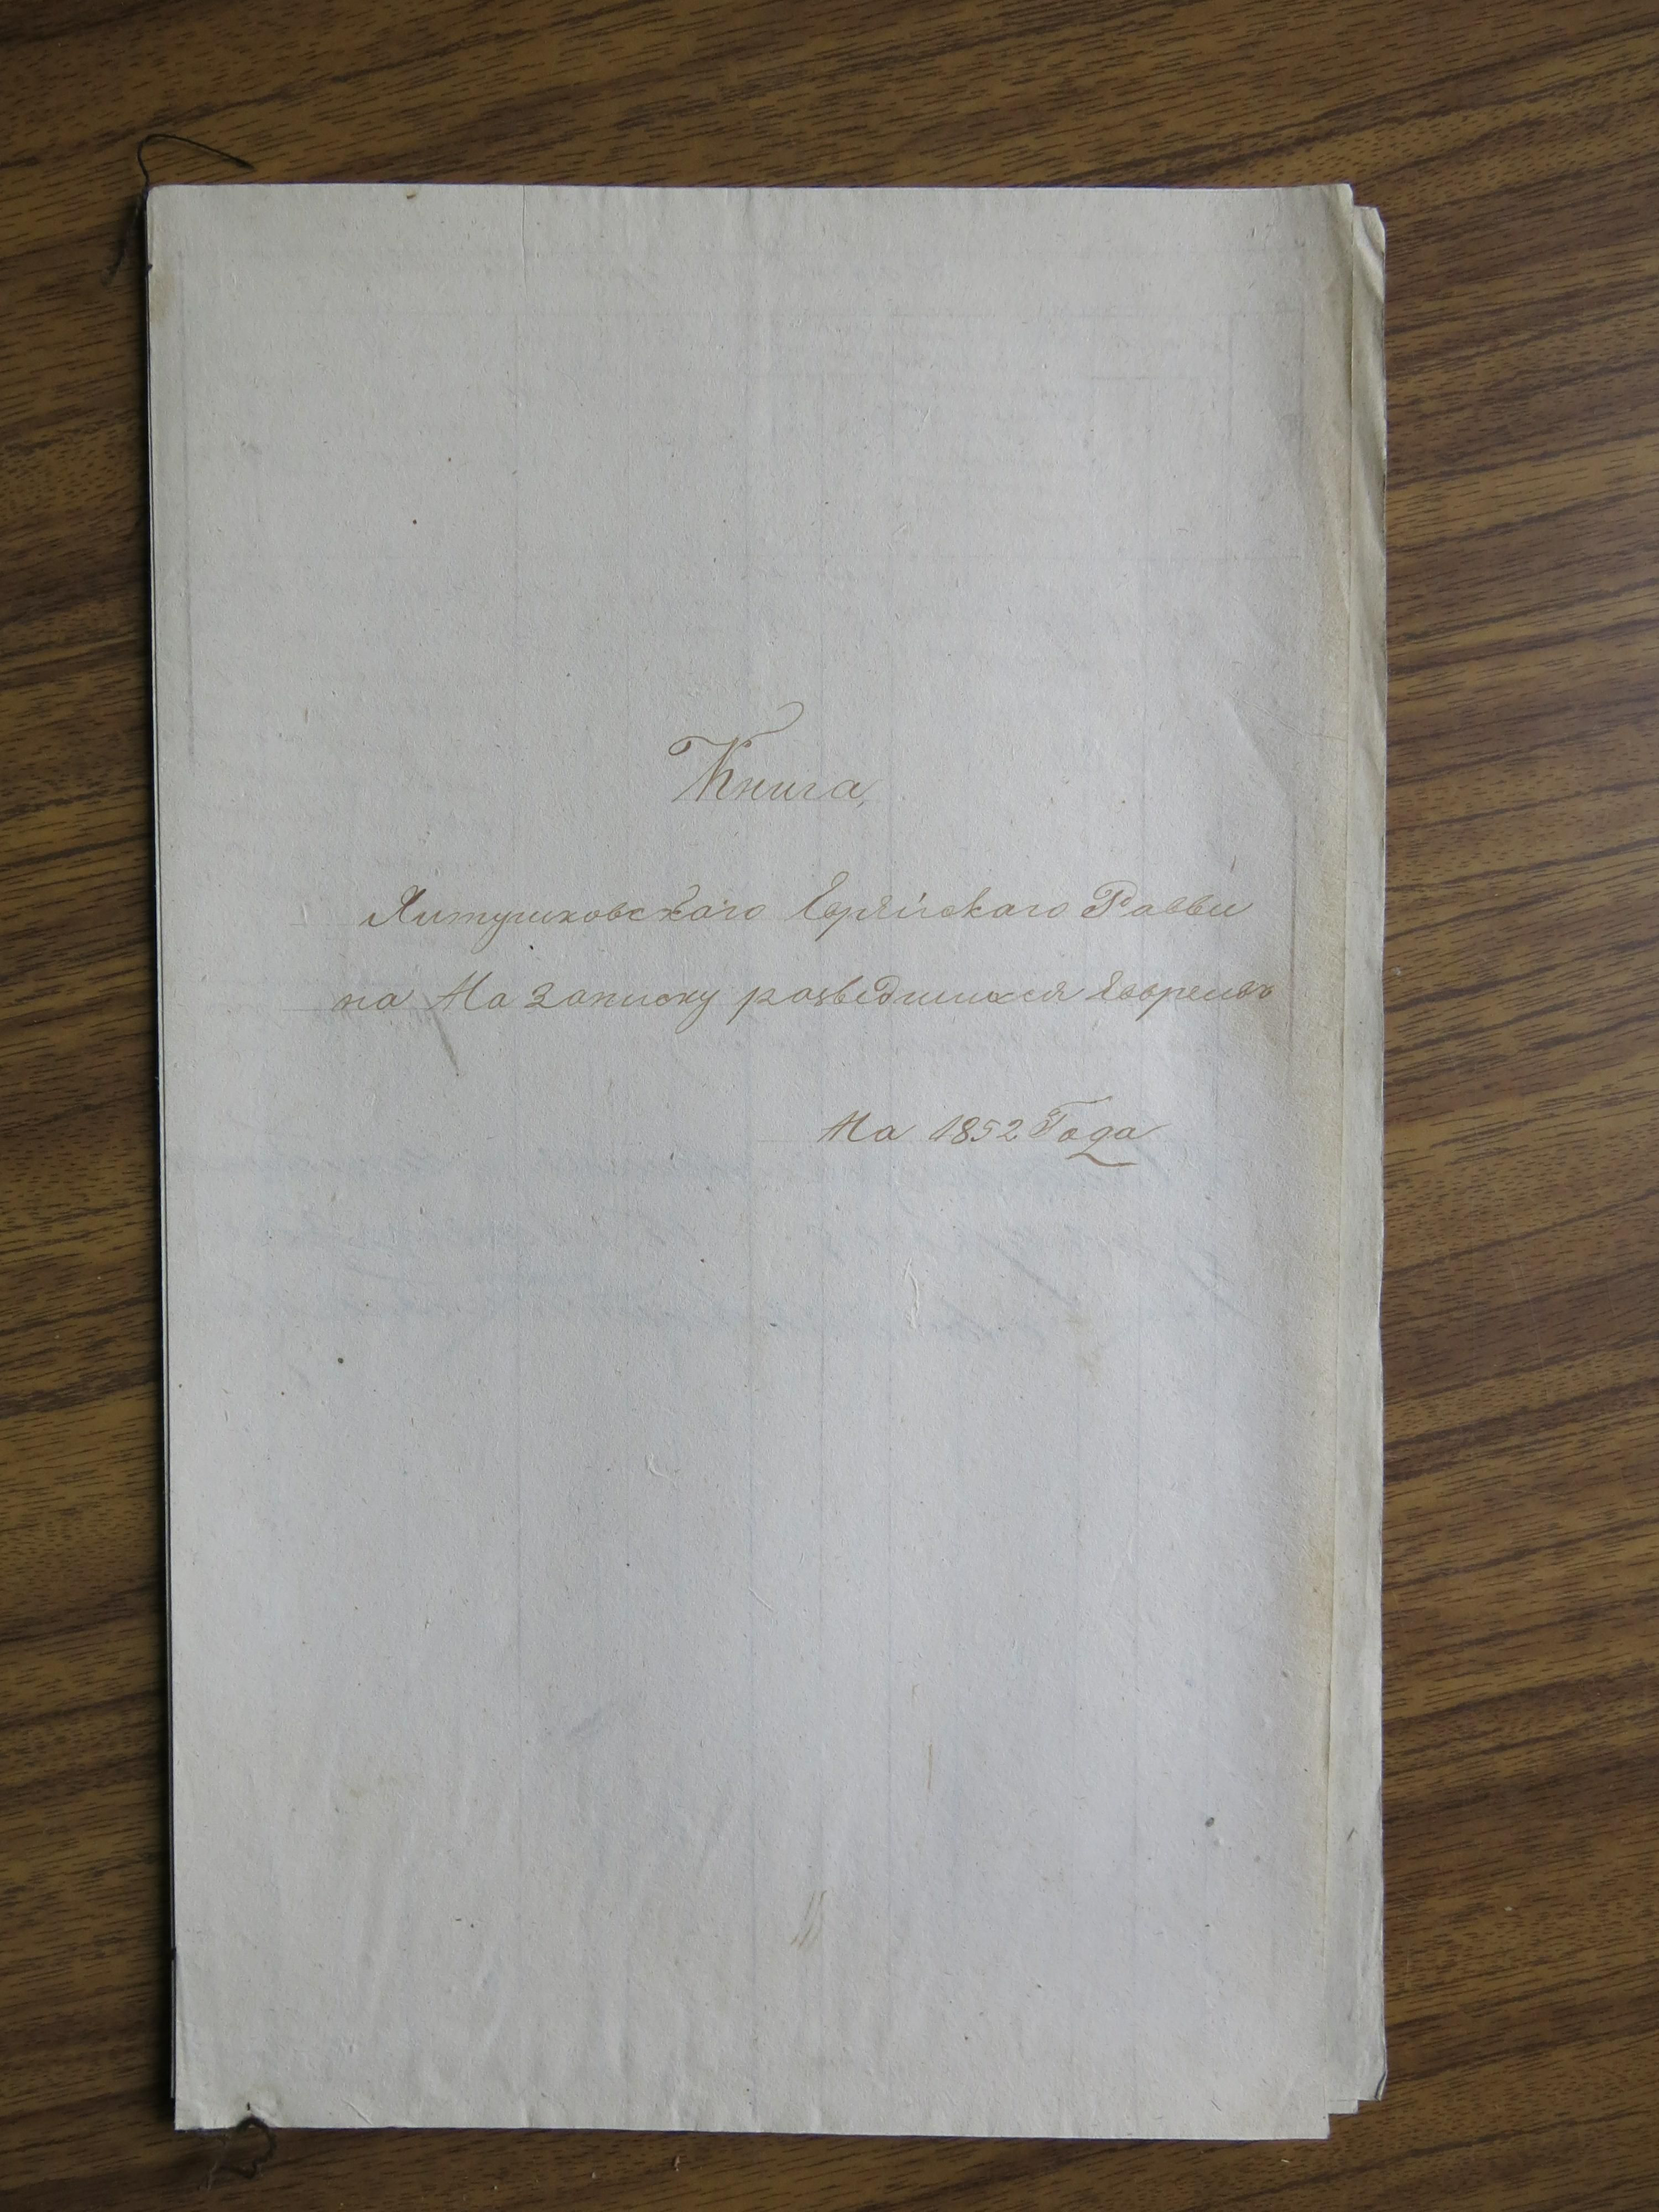 Книга,
Ялтушковскаго Еврейскаго Раввин
на На записку разведшихся Евреевъ
На 1852 Года